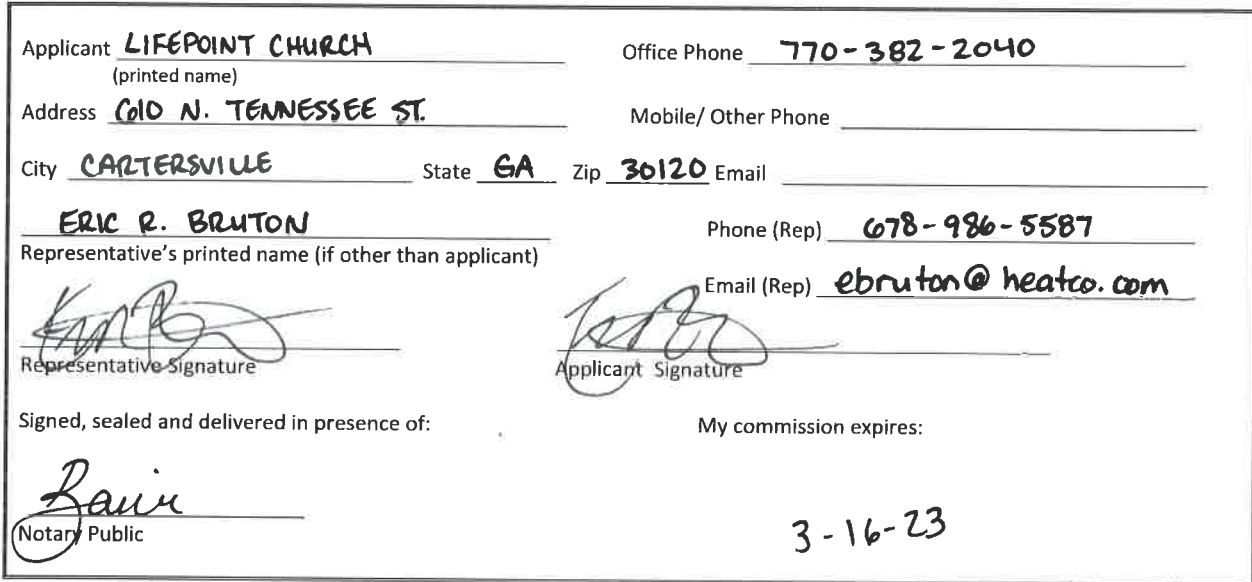 Applicant LIFEPOINT CHURCH Office Phone 770-382-2040
(printed name)
Address 610 N. TENNESSEE ST. Mobile/ Other Phone
City CARTERSVILLE State GA Zip 30120 Email
ERIC R. BRUTON Phone (Rep) 678-986-5587
Representative's printed name (if other than applicant)
Email (Rep) ebruton@heatco.com
Representative Signature Applicant Signature
Signed, sealed and delivered in presence of: My commission expires:
Notary Public 3-16-23